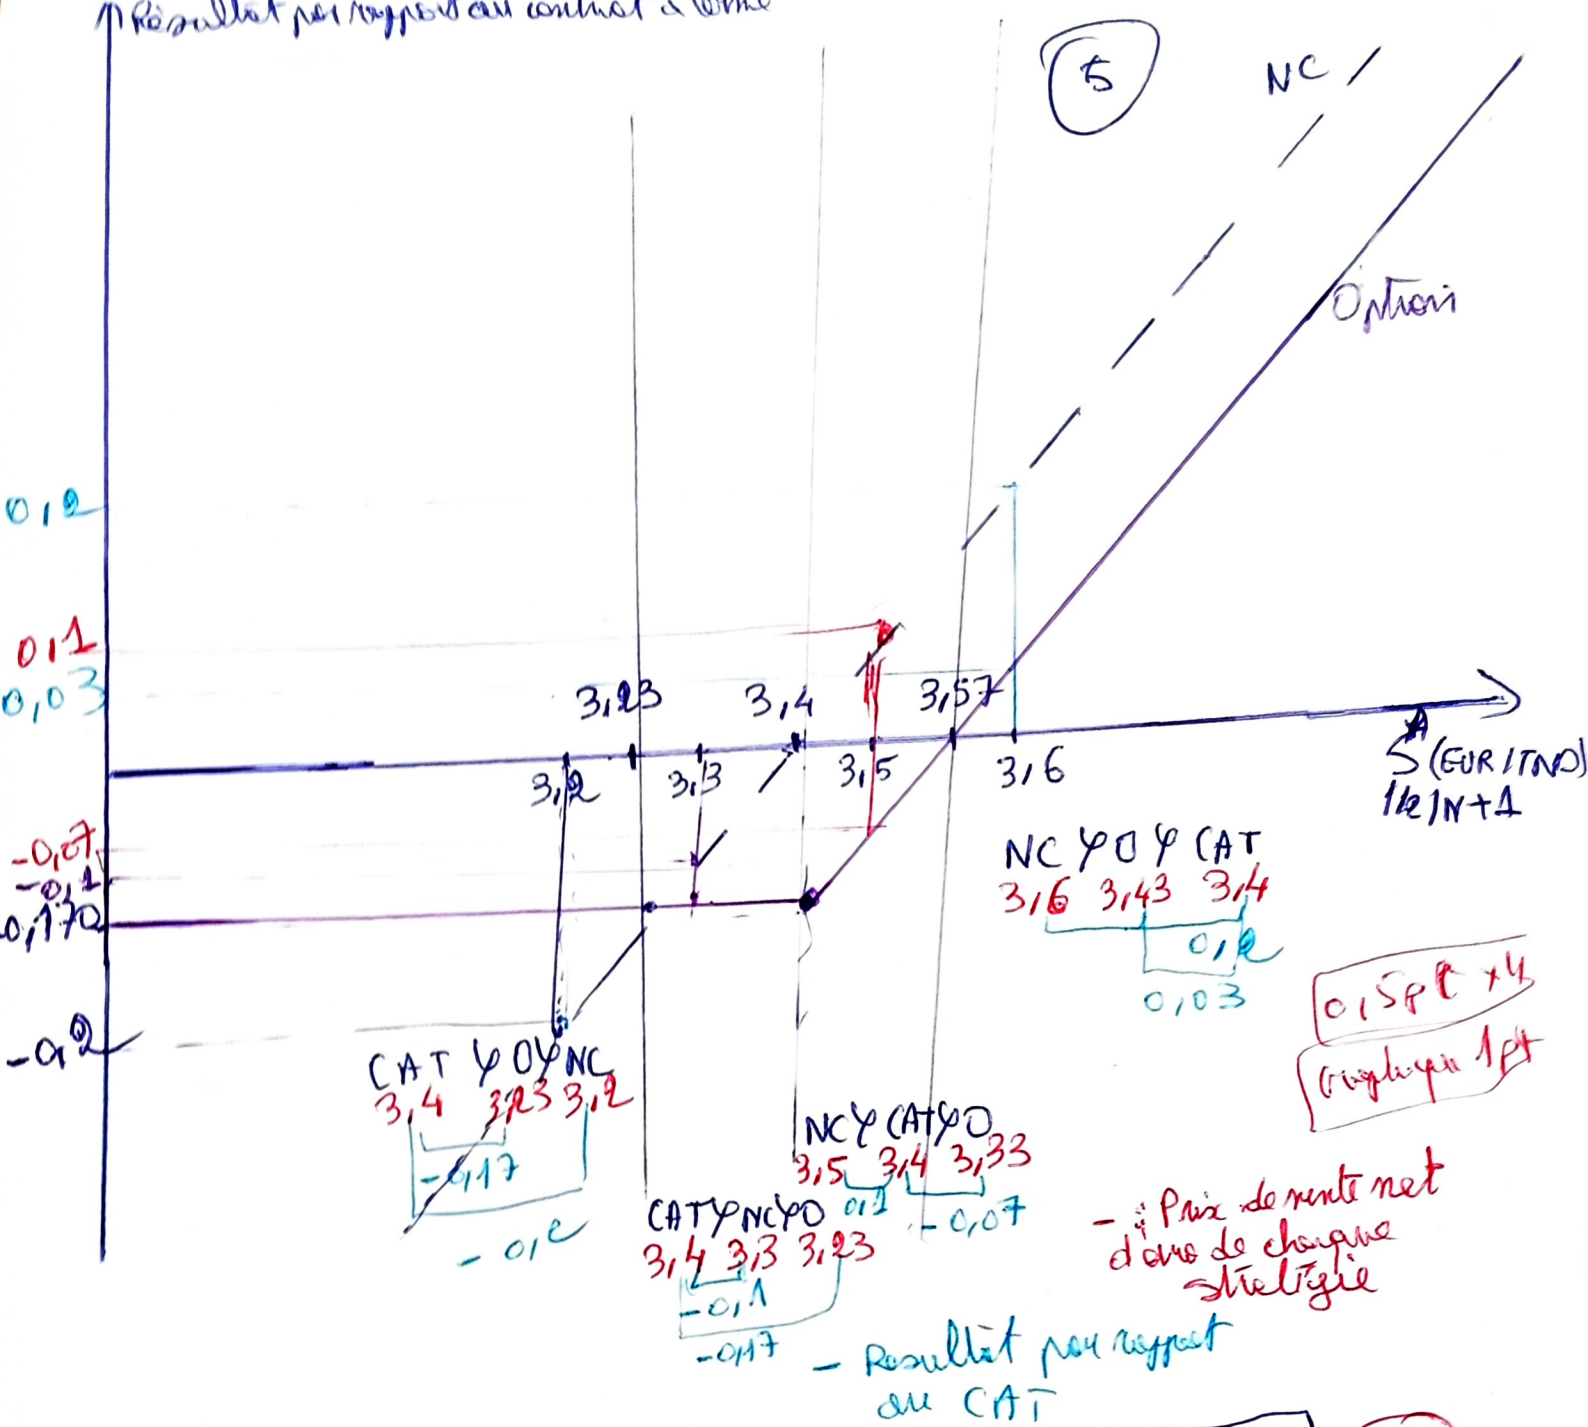 Résultat par rapport au contrat à terme
5
NC
Option
0,2
0,1
0,03
3,23
3,4
3,57
3,2
3,3
3,5
3,6
S (EUR/TND)
1/2/N+1
-0,07
-0,1
-0,170
-0,2
NC > O > CAT
3,6 3,43 3,4
0,2
0,03
0,5pt x4
Graphique 1pt
CAT > O > NC
3,4 3,23 3,2
-0,17
-0,2
NC > CAT > O
3,5 3,4 3,33
0,1
-0,07
CAT > NC > O
3,4 3,3 3,23
-0,1
-0,17
- : Prix de vente net
d'une de chaque
stratégie
- Résultat par rapport
au CAT